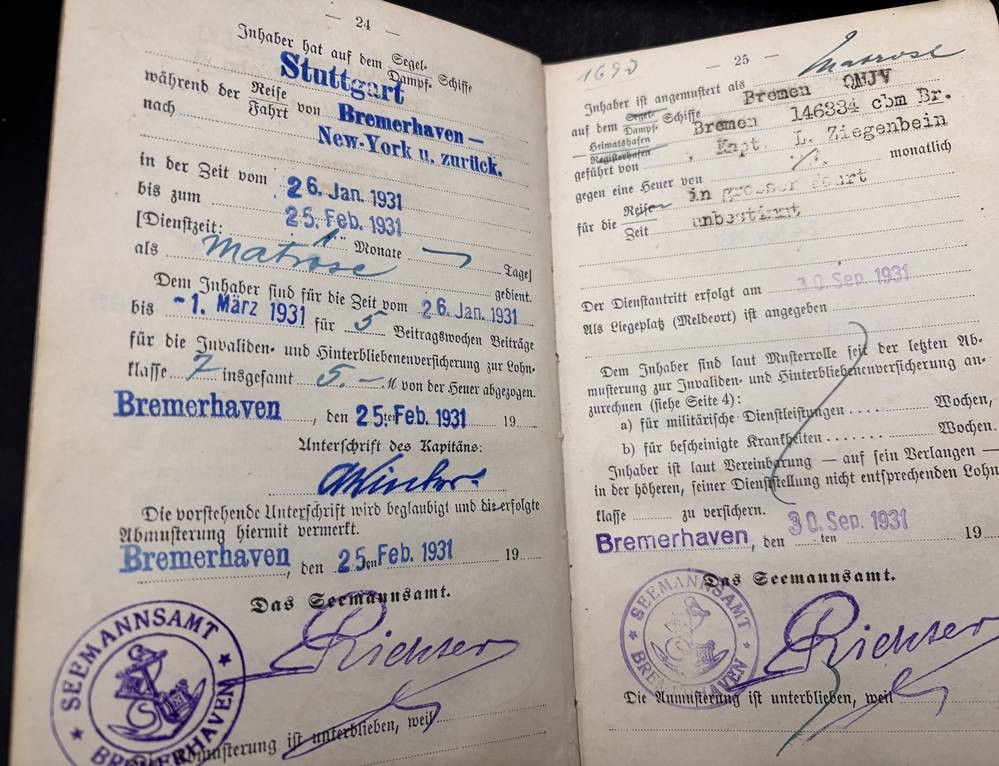 — 24 —
Inhaber hat auf dem Segel-
Dampf- Schiffe
Stuttgart
während der Reise
Fahrt von Bremerhaven —
nach New-York u. zurück.
in der Zeit vom 26. Jan. 1931
bis zum 25. Feb. 1931
[Dienstzeit: 1 Monate — Tage]
als Matrose gedient.
Dem Inhaber sind für die Zeit vom 26. Jan. 1931
bis -1. März 1931 für 5 Beitragswochen Beiträge
für die Invaliden- und Hinterbliebenenversicherung zur Lohn-
klasse 7 insgesamt 5.- M von der Heuer abgezogen.
Bremerhaven, den 25ten Feb. 1931 19
Unterschrift des Kapitäns:
Die vorstehende Unterschrift wird beglaubigt und die erfolgte
Abmusterung hiermit vermerkt.
Bremerhaven, den 25ten Feb. 1931 19
Das Seemannsamt.
Richter
SEEMANNSAMT
BREMERHAVEN
Abmusterung ist unterblieben, weil
— 25 —
Inhaber ist angemustert als Matrose
auf dem Segel-
Dampf- Schiffe Bremen QMJV
Heimatshafen
Registerhafen Bremen 146334 cbm Br.
geführt von , Kapt. L. Ziegenbein
gegen eine Heuer von ./. monatlich
für die Reisen
Zeit in grosser Fahrt
unbestimmt
Der Dienstantritt erfolgt am 30. Sep. 1931
Als Liegeplatz (Meldeort) ist angegeben
Dem Inhaber sind laut Musterrolle seit der letzten Ab-
musterung zur Invaliden- und Hinterbliebenenversicherung an-
zurechnen (siehe Seite 4):
a) für militärische Dienstleistungen .... Wochen,
b) für bescheinigte Krankheiten ....... Wochen.
Inhaber ist laut Vereinbarung — auf sein Verlangen —
in der höheren, seiner Dienststellung nicht entsprechenden Lohn-
klasse zu versichern.
Bremerhaven, den 30. Sep. 1931
ten 19
Das Seemannsamt.
Richter
SEEMANNSAMT
BREMERHAVEN
Die Anmusterung ist unterblieben, weil